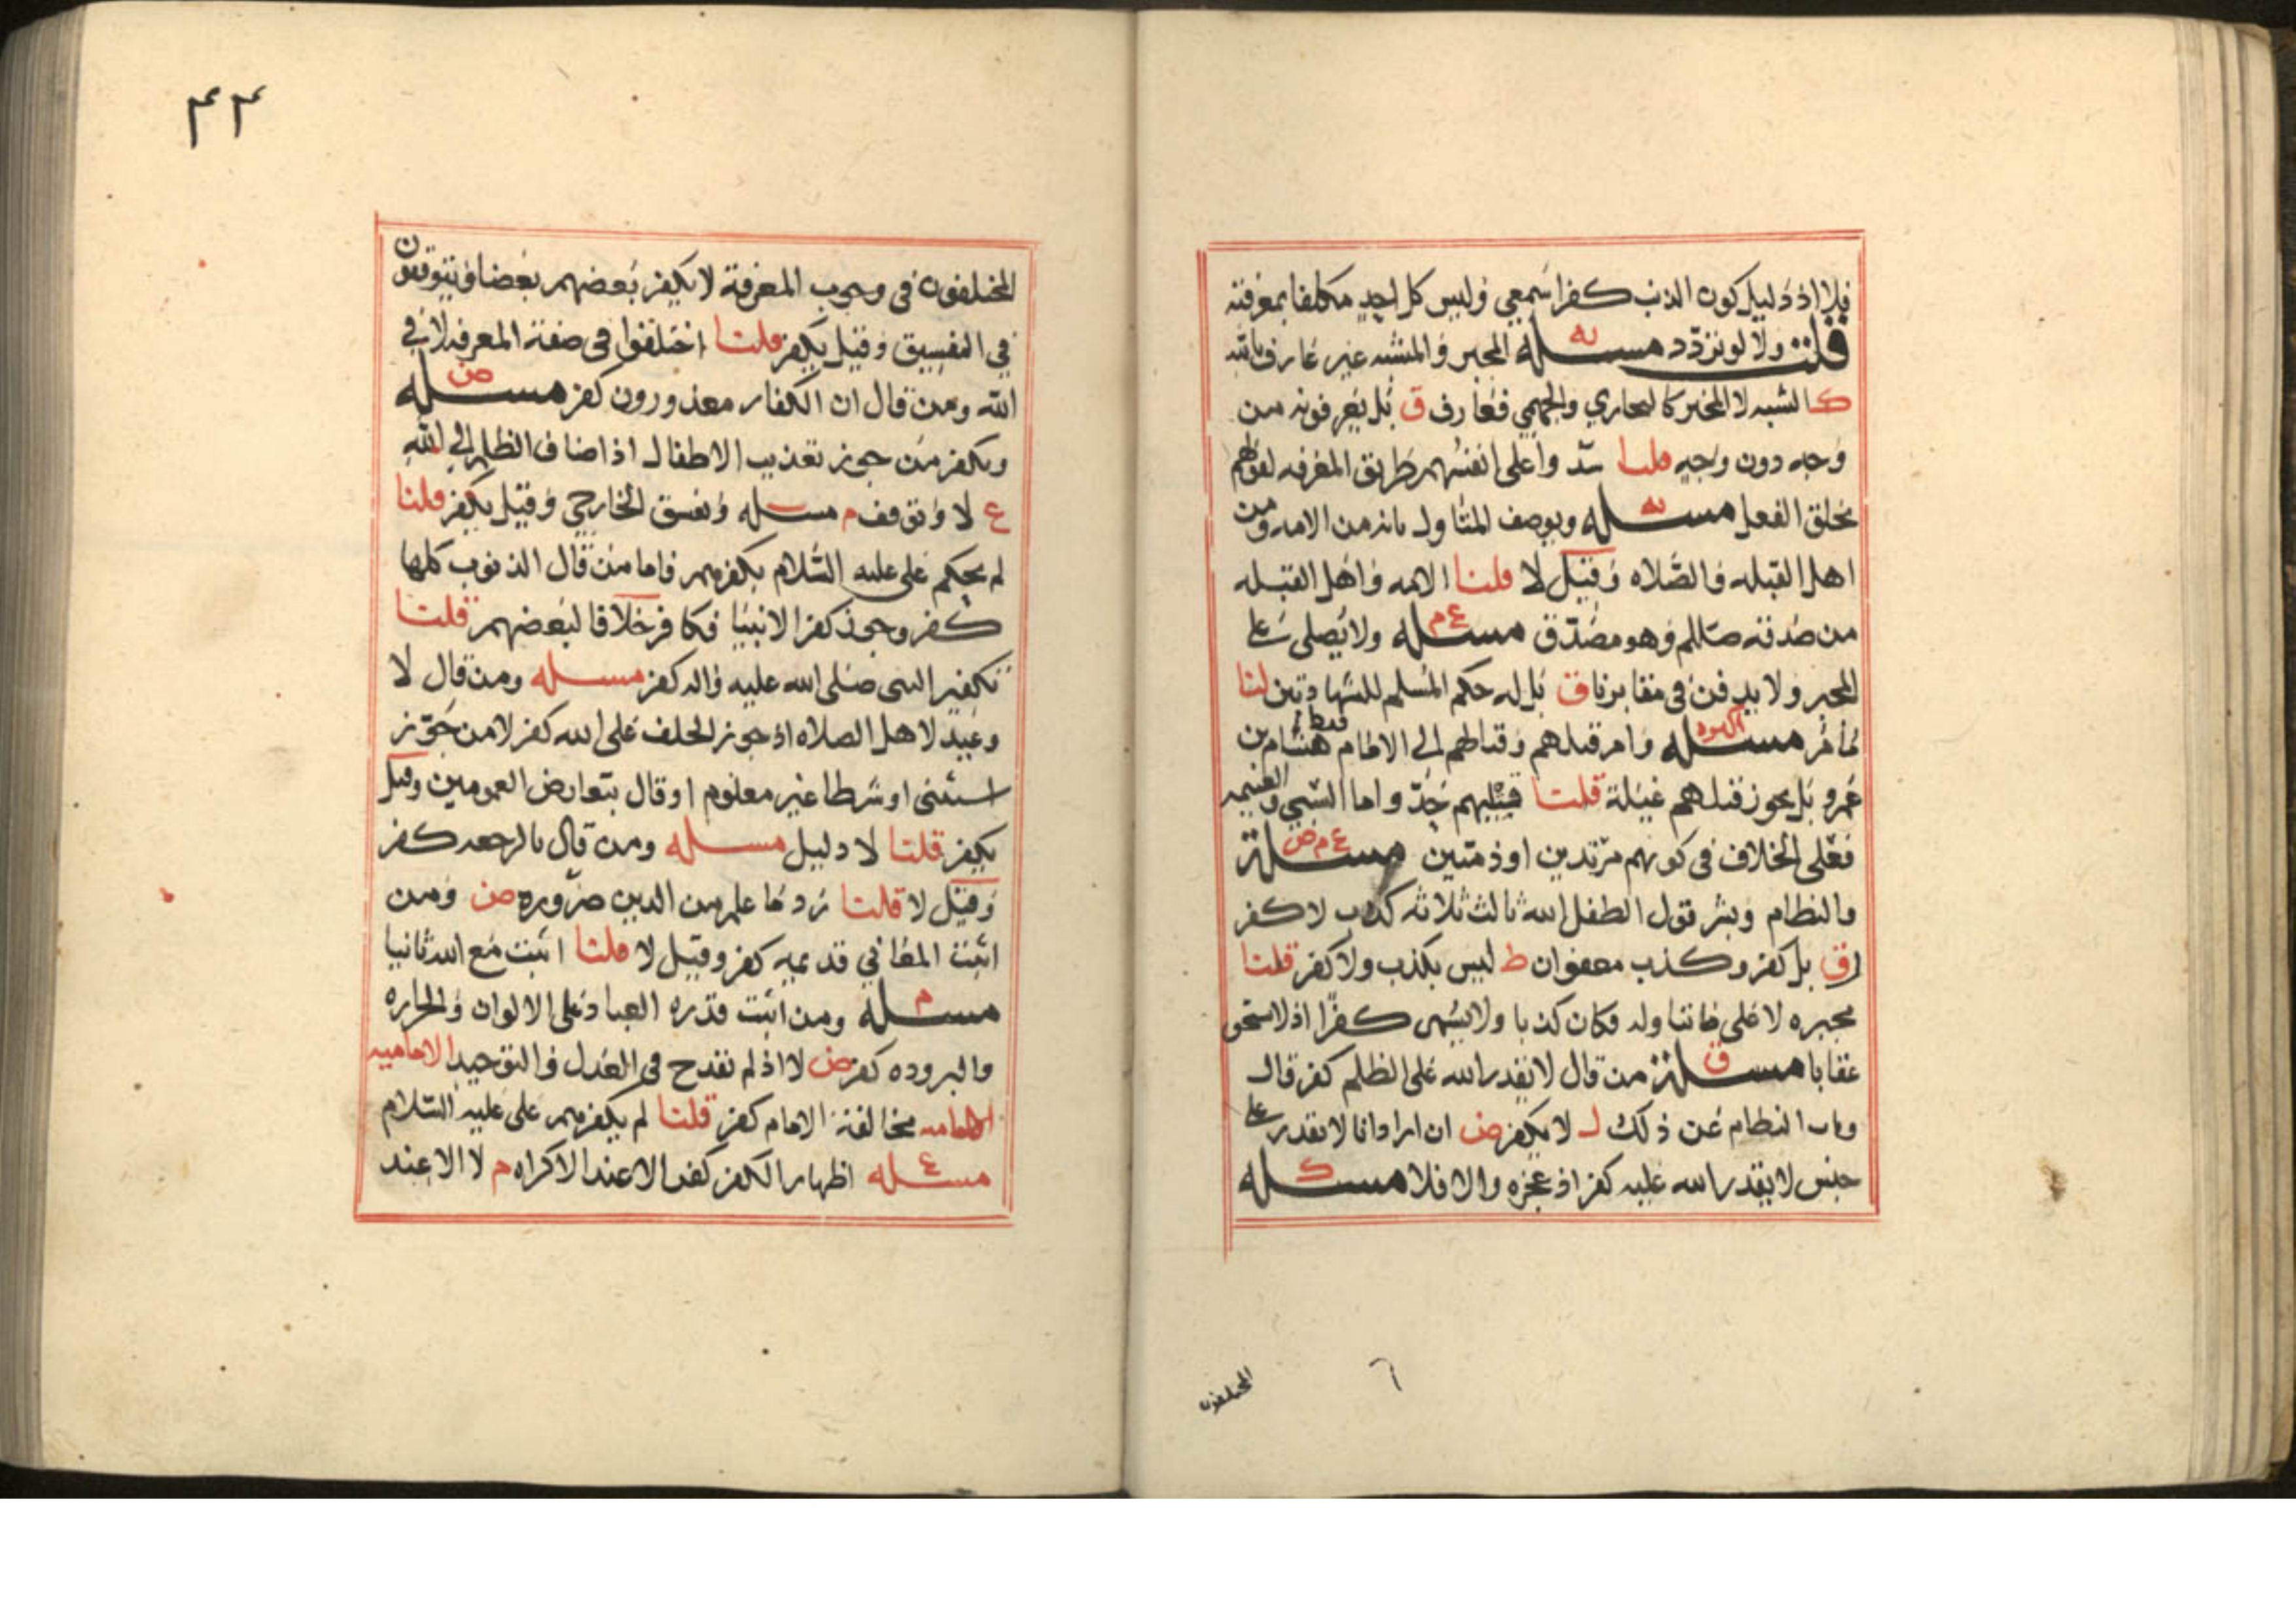 فلا اذ دليل كون الذنب كفرا سمعي وليس كل احد مكلفا بمعرفته
قلت ولا لو تردد مسله يه المجبر والمشبه غير عارف بالله
ك المشبه لا المجبر كالنجاري والجهمي فعارف ق بل يعرفونه من
وجه دون وجه قلنا سدوا على انفسهم طريق المعرفه لقولهم
بخلق الفعل مسله يه ويوصف المتاول بانه من الامه ومن
اهل القبله والصلاه وقيل لا قلنا الامه واهل القبله
من صدقه صللم وهو مصدق مسله ع م ولا يصلى على
المجبر ولا يدفن في مقابرنا ق بل له حكم المسلم للشهادتين لنا
ما مر مسله اكثره وامر قتلهم وقتالهم الى الامام فقط هشام بن
عمرو بل يجوز قتلهم غيلة قلنا قتلهم حد واما السبي والغنيمه
فعلى الخلاف في كونهم مرتدين او ذميين مسلة ع م ض
والنظام وبشر قول الطفل الله ثالث ثلاثه كذب لا كفر
ق بل كفر وكذب معفوان ط ليس بكذب ولا كفر قلنا
مخبره لا على ما تناوله فكان كذبا ولا يسمى كفرا اذ لا يستحق
عقابا مسلة ق من قال لا يقدر الله على الظلم كفر قال
وتاب النظام عن ذلك ل لا يكفر ض ان اراد انا لا نقدر على
جنس لا يقدر الله عليه كفر اذ عجزه والا فلا مسله ك
المختلفون
٤٣
المختلفون في وجوب المعرفة لا يكفر بعضهم بعضا ويتوقفون
في التفسيق وقيل يكفر قلنا اختلفوا في صفة المعرفه لا في
الله ومن قال ان الكفار معذورون كفر مسله ض
ويكفر من جوز تعذيب الاطفال اذ اضاف الظلم الى الله
ع لا وتوقف م مسله ويفسق الخارجي وقيل يكفر قلنا
لم يحكم علي عليه السلام بكفرهم فاما من قال الذنوب كلها
كفر وجوز كفر الانبيا فكافر خلافا لبعضهم قلنا
تكفير النبي صلى الله عليه واله كفر مسله ومن قال لا
وعيد لاهل الصلاه اذ جوز الخلف على الله كفر لا من جوز
استثنى او شرطا غير معلوم او قال بتعارض العمومين وقيل
يكفر قلنا لا دليل مسله ومن قال بالرجعه كفر
وقيل لا قلنا رد ما علم من الدين ضروره ض ومن
اثبت المعاني قديمه كفر وقيل لا قلنا اثبت مع الله ثانيا
مسله م ومن اثبت قدره العباد على الالوان والحراره
والبروده كفر ض لا اذ لم يقدح في العدل والتوحيد الاماميه
الاماميه مخالفة الامام كفر قلنا لم يكفرهم علي عليه السلام
مسله ع اظهار الكفر كفر الا عند الاكراه م لا الا عند